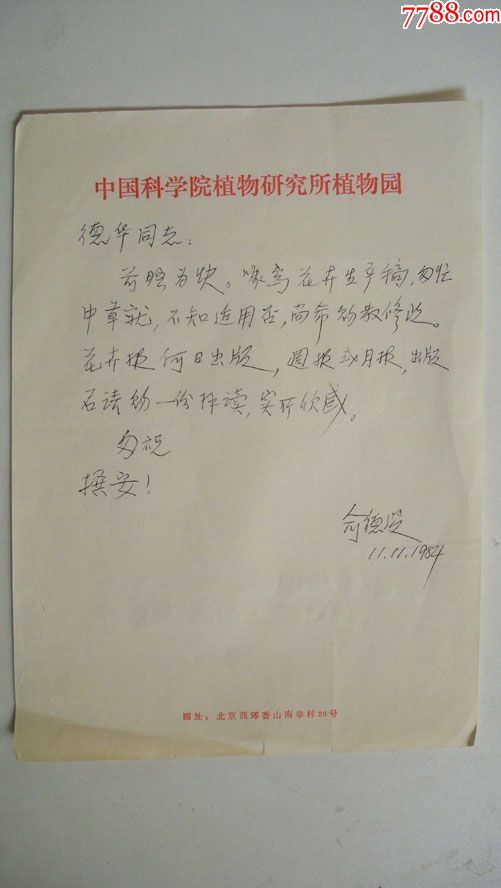 7788.com
中国科学院植物研究所植物园
德华同志:
前晤为快。嘱写花卉生平稿,匆忙
中草就,不知适用否,尚希赐教修改。
花卉报何日出版,週报或月报,出版
后请赐一份拜读,实所欣感。
匆祝
撰安!
俞德浚
11.11.1984
园址:北京西郊香山南辛村20号